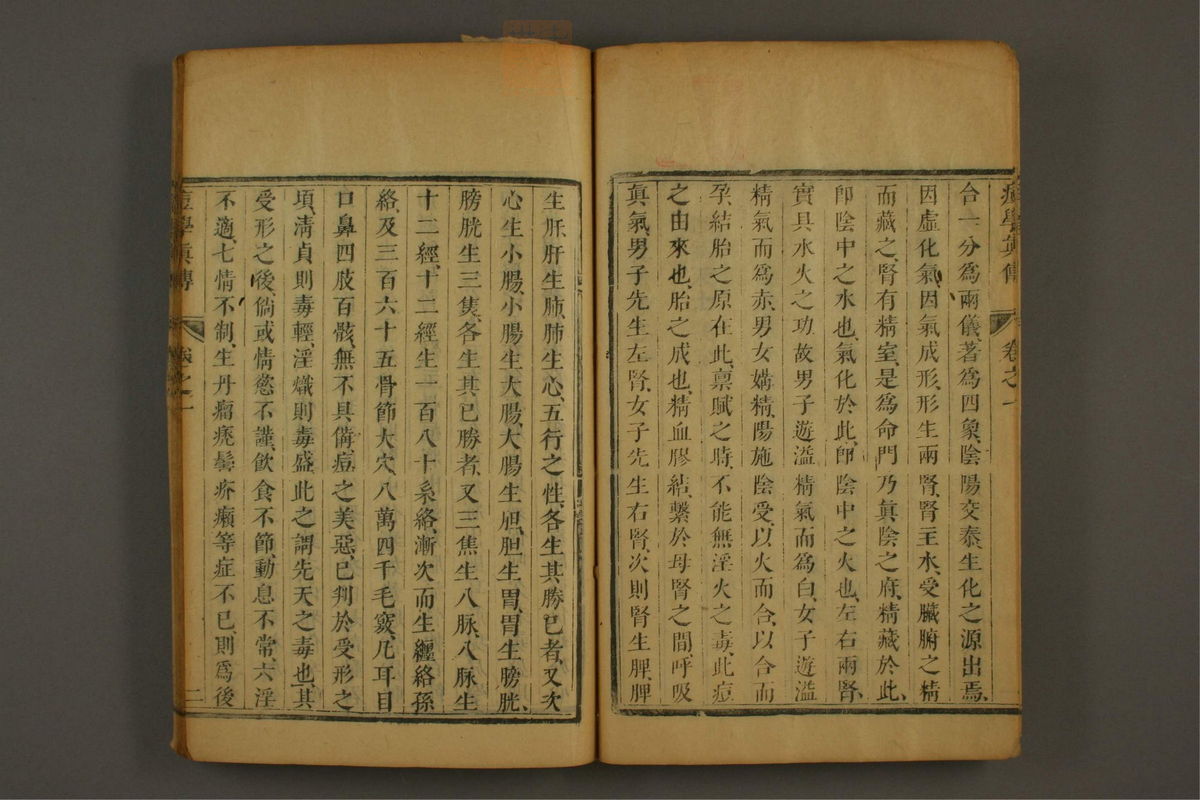 痘學眞傳 卷之一
合一分爲兩儀、著爲四象、陰陽交泰、生化之源出焉、
因虛化氣、因氣成形、形生兩腎、腎主水、受臟腑之精
而藏之、腎有精室、是爲命門、乃眞陰之府、精藏於此、
卽陰中之水也、氣化於此、卽陰中之火也、左右兩腎、
實具水火之功、故男子遊溢精氣而爲白、女子遊溢
精氣而爲赤、男女媾精、陽施陰受、以火而合、以合而
孕、結胎之原在此、禀賦之時、不能無淫火之毒、此痘
之由來也、胎之成也、精血膠結、繫於母腎之間、呼吸
眞氣、男子先生左腎、女子先生右腎、次則腎生脾、脾
生肝、肝生肺、肺生心、五行之性、各生其勝己者、又次
心生小腸、小腸生大腸、大腸生胆、胆生胃、胃生膀胱、
膀胱生三焦、各生其己勝者、又三焦生八脉、八脉生
十二經、十二經生一百八十糸絡、漸次而生纏絡孫
絡、及三百六十五骨節大穴、八萬四千毛竅、凡耳目
口鼻四肢百骸、無不具備、痘之美惡、已判於受形之
項、淸貞則毒輕、淫熾則毒盛、此之謂先天之毒也、其
受形之後、倘或情慾不謹、飮食不節、動息不常、六淫
不適、七情不制、生丹瘤㿀鬁疥癩等症不已、則爲後
痘學眞傳 卷之一 二